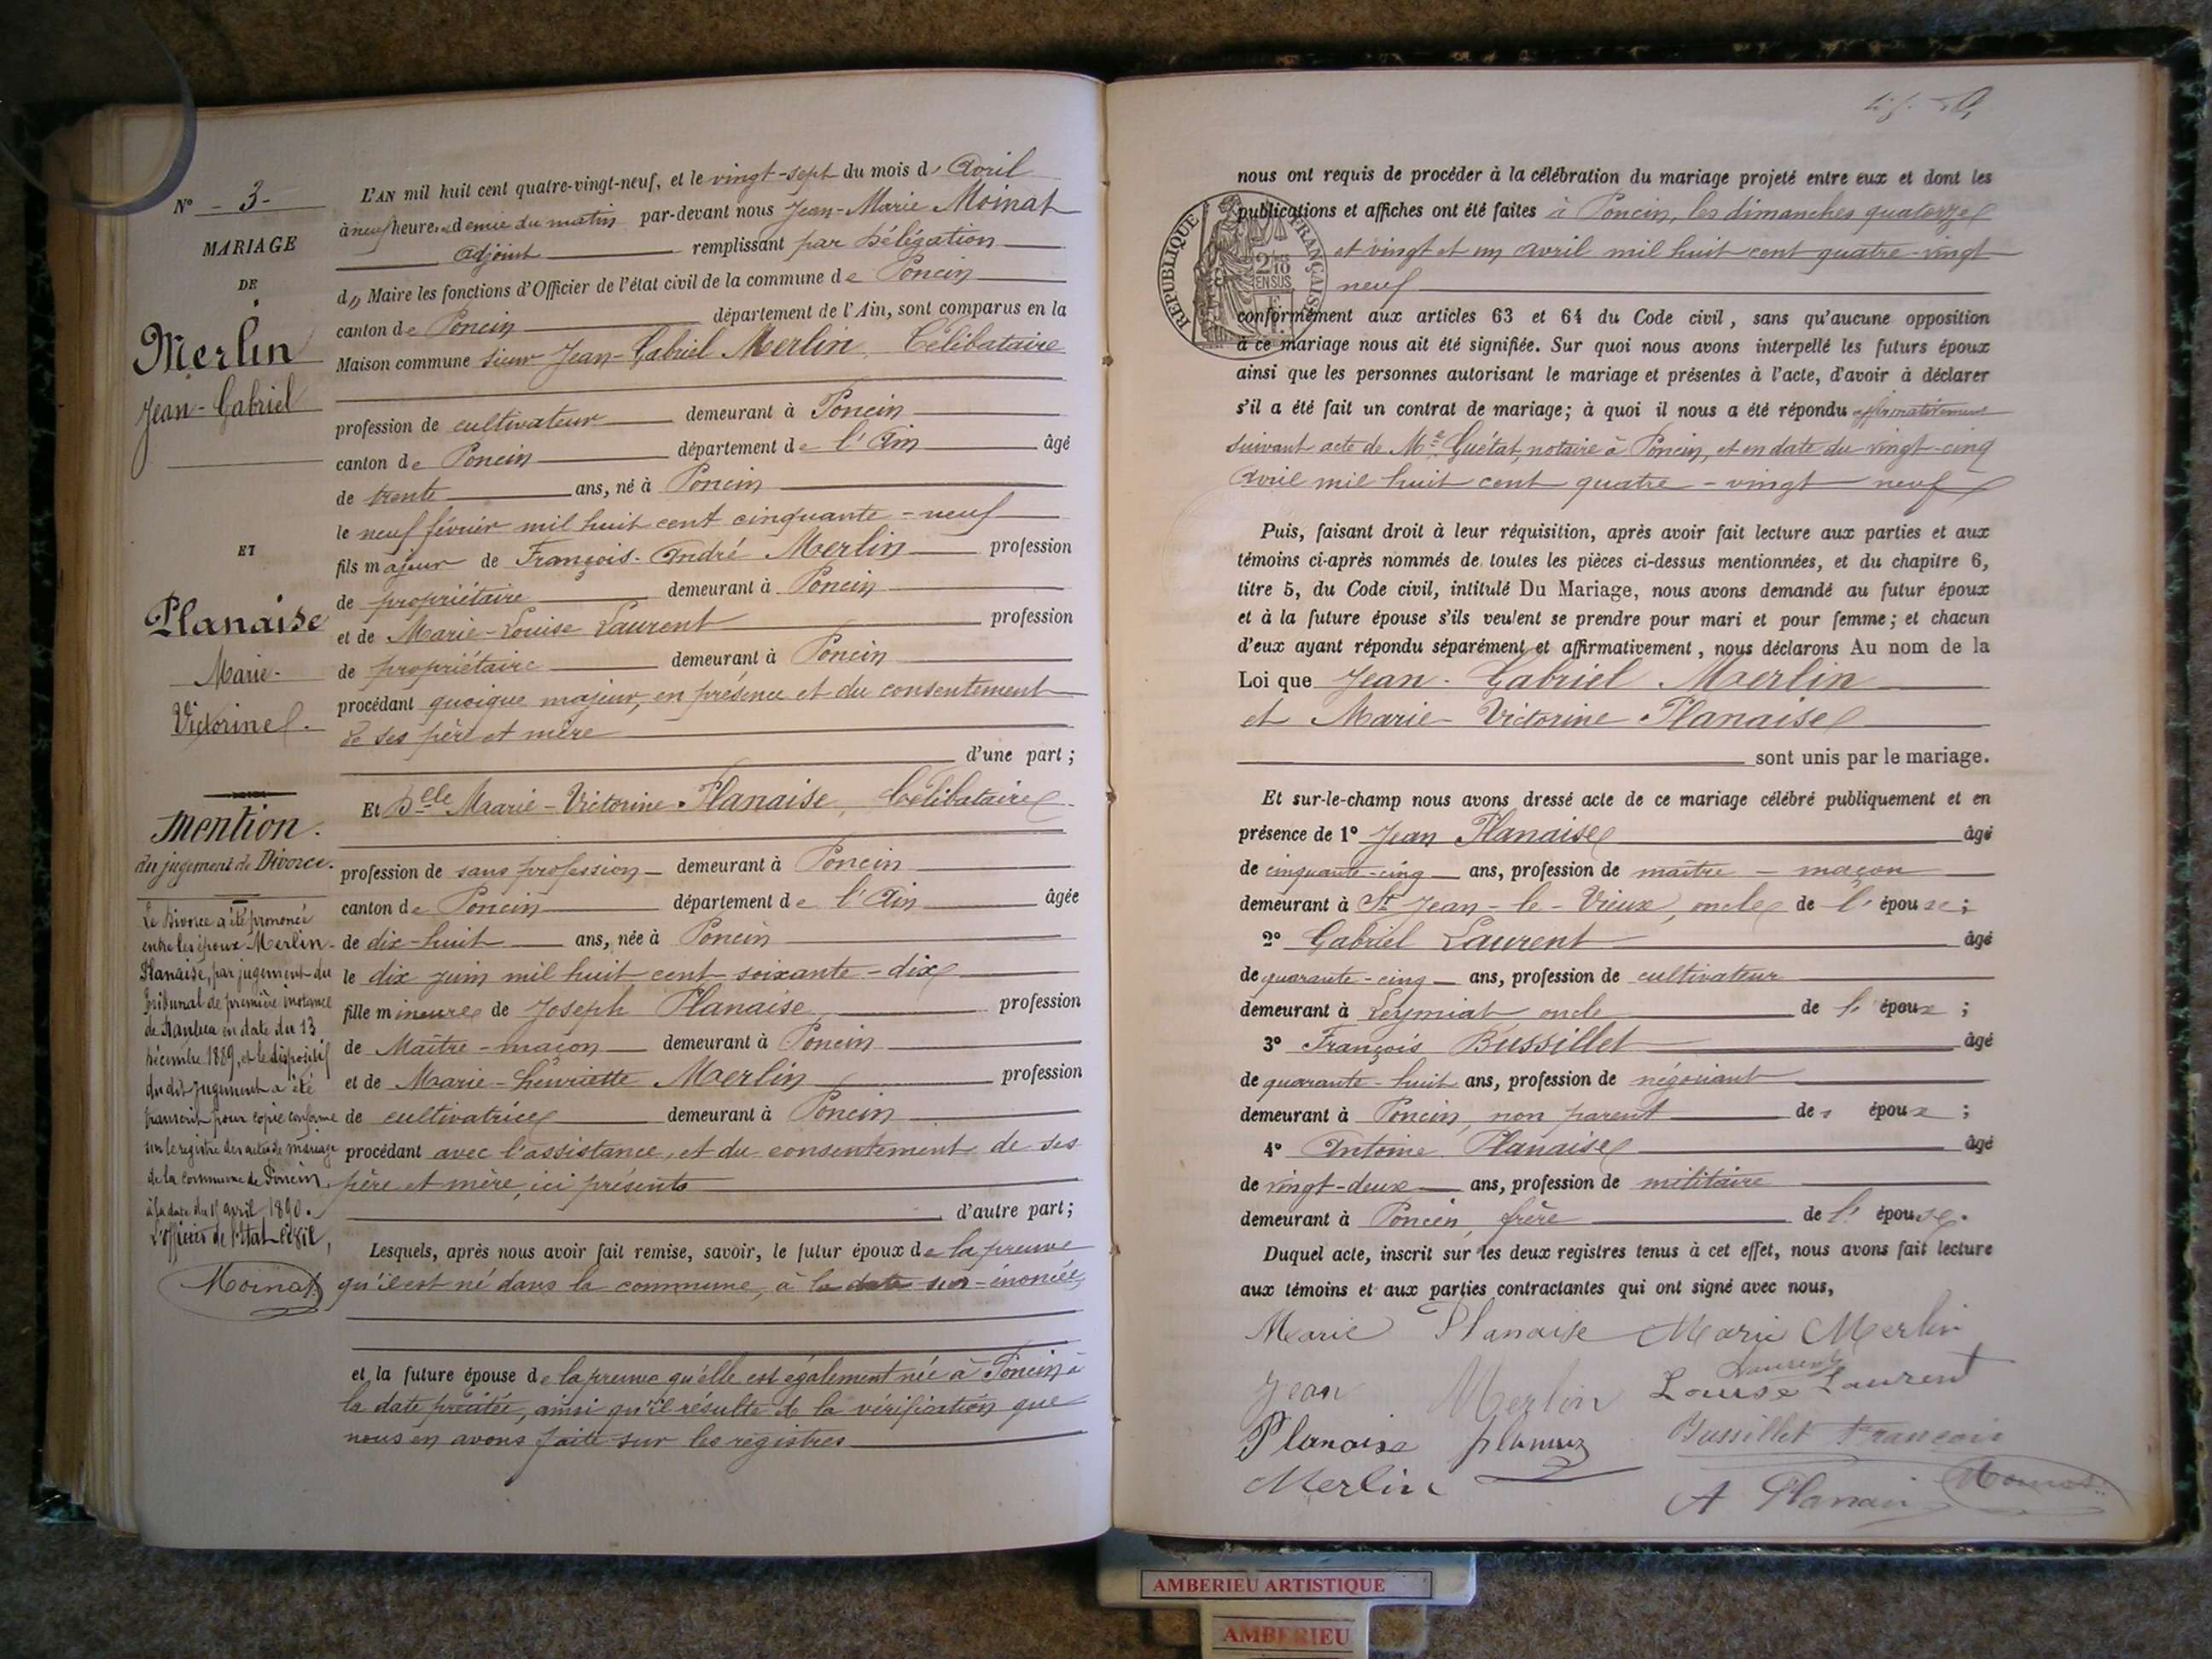 N° - 3 -
MARIAGE
DE
Merlin
Jean-Gabriel
ET
Planaise
Marie-
Victorine.
Mention.
du jugement de Divorce.
Le Divorce a été prononcé
entre les époux Merlin-
Planaise, par jugement du
tribunal de première instance
de Nantua en date du 13
décembre 1889, et le dispositif
du dit jugement a été
transcrit pour copie conforme
sur le registre des actes de mariage
de la commune de Poncin,
à la date du avril 1890.
L'officier de l'Etat Civil,
Moinat
L'AN mil huit cent quatre-vingt-neuf, et le vingt-sept du mois d' Avril
à neuf heures et demie du matin par-devant nous Jean-Marie Moinat
adjoint remplissant par délégation
du Maire les fonctions d'Officier de l'état civil de la commune de Poncin
canton de Poncin département de l'Ain, sont comparus en la
Maison commune sieur Jean-Gabriel Merlin, Célibataire
profession de cultivateur demeurant à Poncin
canton de Poncin département de l'Ain âgé
de trente ans, né à Poncin
le neuf février mil huit cent cinquante-neuf
fils majeur de François-André Merlin profession
de propriétaire demeurant à Poncin
et de Marie-Louise Laurent profession
de propriétaire demeurant à Poncin
procédant quoique majeur, en présence et du consentement
de ses père et mère
d'une part ;
Et Delle Marie-Victorine Planaise, Célibataire
profession de sans profession demeurant à Poncin
canton de Poncin département de l'Ain âgée
de dix-huit ans, née à Poncin
le dix juin mil huit cent soixante-dix
fille mineure de Joseph Planaise profession
de Maître-maçon demeurant à Poncin
et de Marie-Henriette Merlin profession
de cultivatrice demeurant à Poncin
procédant avec l'assistance, et du consentement de ses
père et mère, ici présents
d'autre part ;
Lesquels, après nous avoir fait remise, savoir, le futur époux de la preuve
qu'il est né dans la commune, à la date sus-énoncée,
et la future épouse de la preuve qu'elle est également née à Poncin à
la date précitée, ainsi qu'il résulte de la vérification que
nous en avons faite sur les registres
nous ont requis de procéder à la célébration du mariage projeté entre eux et dont les
publications et affiches ont été faites à Poncin, les dimanches quatorze
et vingt et un avril mil huit cent quatre-vingt
neuf
REPUBLIQUE FRANÇAISE
2/10 EN SUS
conformément aux articles 63 et 64 du Code civil, sans qu'aucune opposition
à ce mariage nous ait été signifiée. Sur quoi nous avons interpellé les futurs époux
ainsi que les personnes autorisant le mariage et présentes à l'acte, d'avoir à déclarer
s'il a été fait un contrat de mariage; à quoi il nous a été répondu affirmativement
suivant acte de Me Guétat, notaire à Poncin, et en date du vingt-cinq
avril mil huit cent quatre-vingt neuf
Puis, faisant droit à leur réquisition, après avoir fait lecture aux parties et aux
témoins ci-après nommés de toutes les pièces ci-dessus mentionnées, et du chapitre 6,
titre 5, du Code civil, intitulé Du Mariage, nous avons demandé au futur époux
et à la future épouse s'ils veulent se prendre pour mari et pour femme; et chacun
d'eux ayant répondu séparément et affirmativement, nous déclarons Au nom de la
Loi que Jean-Gabriel Merlin
et Marie-Victorine Planaise
sont unis par le mariage.
Et sur-le-champ nous avons dressé acte de ce mariage célébré publiquement et en
présence de 1° Jean Planaise âgé
de cinquante-cinq ans, profession de maître-maçon
demeurant à St Jean-le-Vieux, oncle de l'épouse ;
2° Gabriel Laurent âgé
de quarante-cinq ans, profession de cultivateur
demeurant à Leymiat oncle de l'époux ;
3° François Bussillet âgé
de quarante-huit ans, profession de négociant
demeurant à Poncin, non parent des époux ;
4° Antoine Planaise âgé
de vingt-deux ans, profession de militaire
demeurant à Poncin, frère de l'épouse.
Duquel acte, inscrit sur les deux registres tenus à cet effet, nous avons fait lecture
aux témoins et aux parties contractantes qui ont signé avec nous,
Marie Planaise Marie Merlin
Jean Merlin Louise Laurent
Laurent
Planaise
Bussillet François
Merlin
A Planais Moinat
AMBERIEU ARTISTIQUE
AMBERIEU